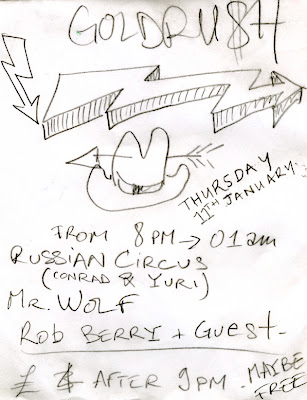 GOLDRU$H
THURSDAY
11TH JANUARY.
FROM 8PM → 01am
RUSSIAN CIRCUS
(CONRAD & YURI)
MR. WOLF
ROB BERRY + GUEST-
£ AFTER 9PM - MAYBE
FREE